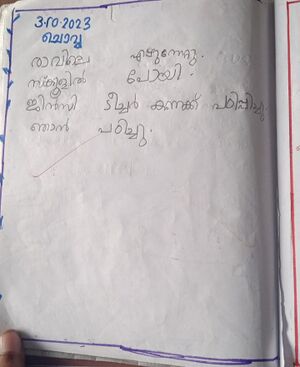 3.10.2023
ചൊവ്വ
രാവിലെ എഴുന്നേറ്റു.
സ്കൂളിൽ പോയി.
ജിൻസി ടീച്ചർ കണക്ക് പഠിപ്പിച്ചു
ഞാൻ പഠിച്ചു.